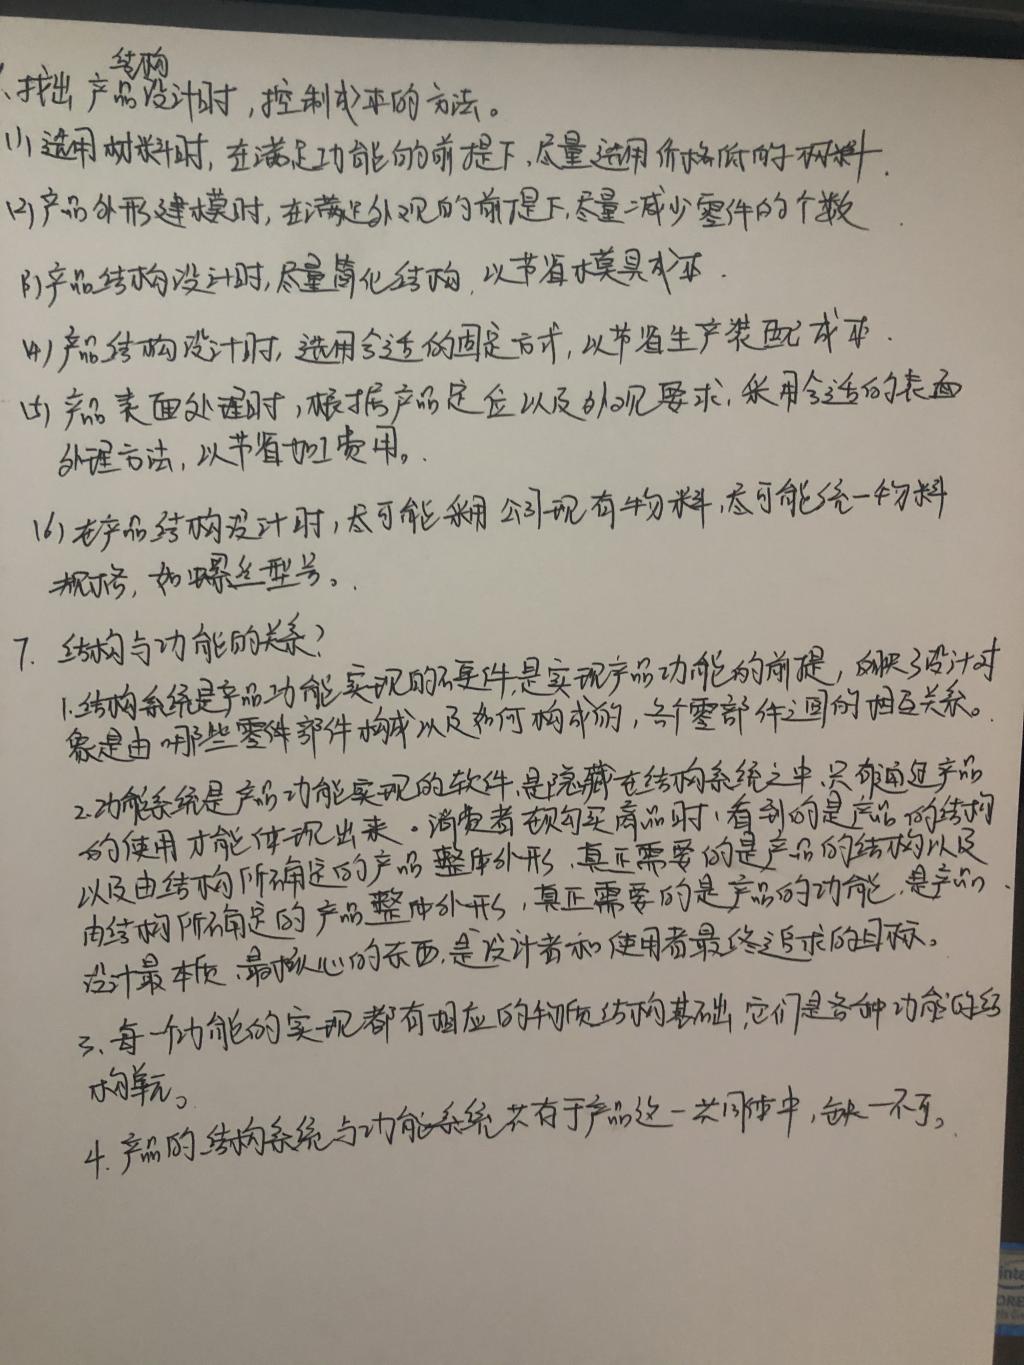 结构
、找出产品设计时，控制成本的方法。
(1) 选用材料时，在满足功能的前提下，尽量选用价格低的材料.
(2) 产品外形建模时，在满足外观的前提下，尽量减少零件的个数.
(3) 产品结构设计时，尽量简化结构，以节省模具成本.
(4) 产品结构设计时，选用合适的固定方式，以节省生产装配成本.
(5) 产品表面处理时，根据产品定位以及外观要求，采用合适的表面
处理方法，以节省加工费用。
(6) 在产品结构设计时，尽可能采用公司现有物料，尽可能统一物料
规格，如螺丝型号。
7. 结构与功能的关系？
1.结构系统是产品功能实现的硬件，是实现产品功能的前提，反映了设计对
象是由哪些零件部件构成以及如何构成的，各个零部件之间的相互关系。
2.功能系统是产品功能实现的软件，是隐藏在结构系统之中，只有通过产品
的使用才能体现出来。消费者在购买商品时，看到的是产品的结构
以及由结构所确定的产品整体外形，真正需要的是产品的结构以及
由结构所确定的产品整体外形，真正需要的是产品的功能，是产品
设计最本质、最核心的东西，是设计者和使用者最终追求的目标。
3、每一个功能的实现都有相应的物质结构基础，它们是各种功能的结
构单元。
4.产品的结构系统与功能系统共存于产品这一共同体中，缺一不可。
inte